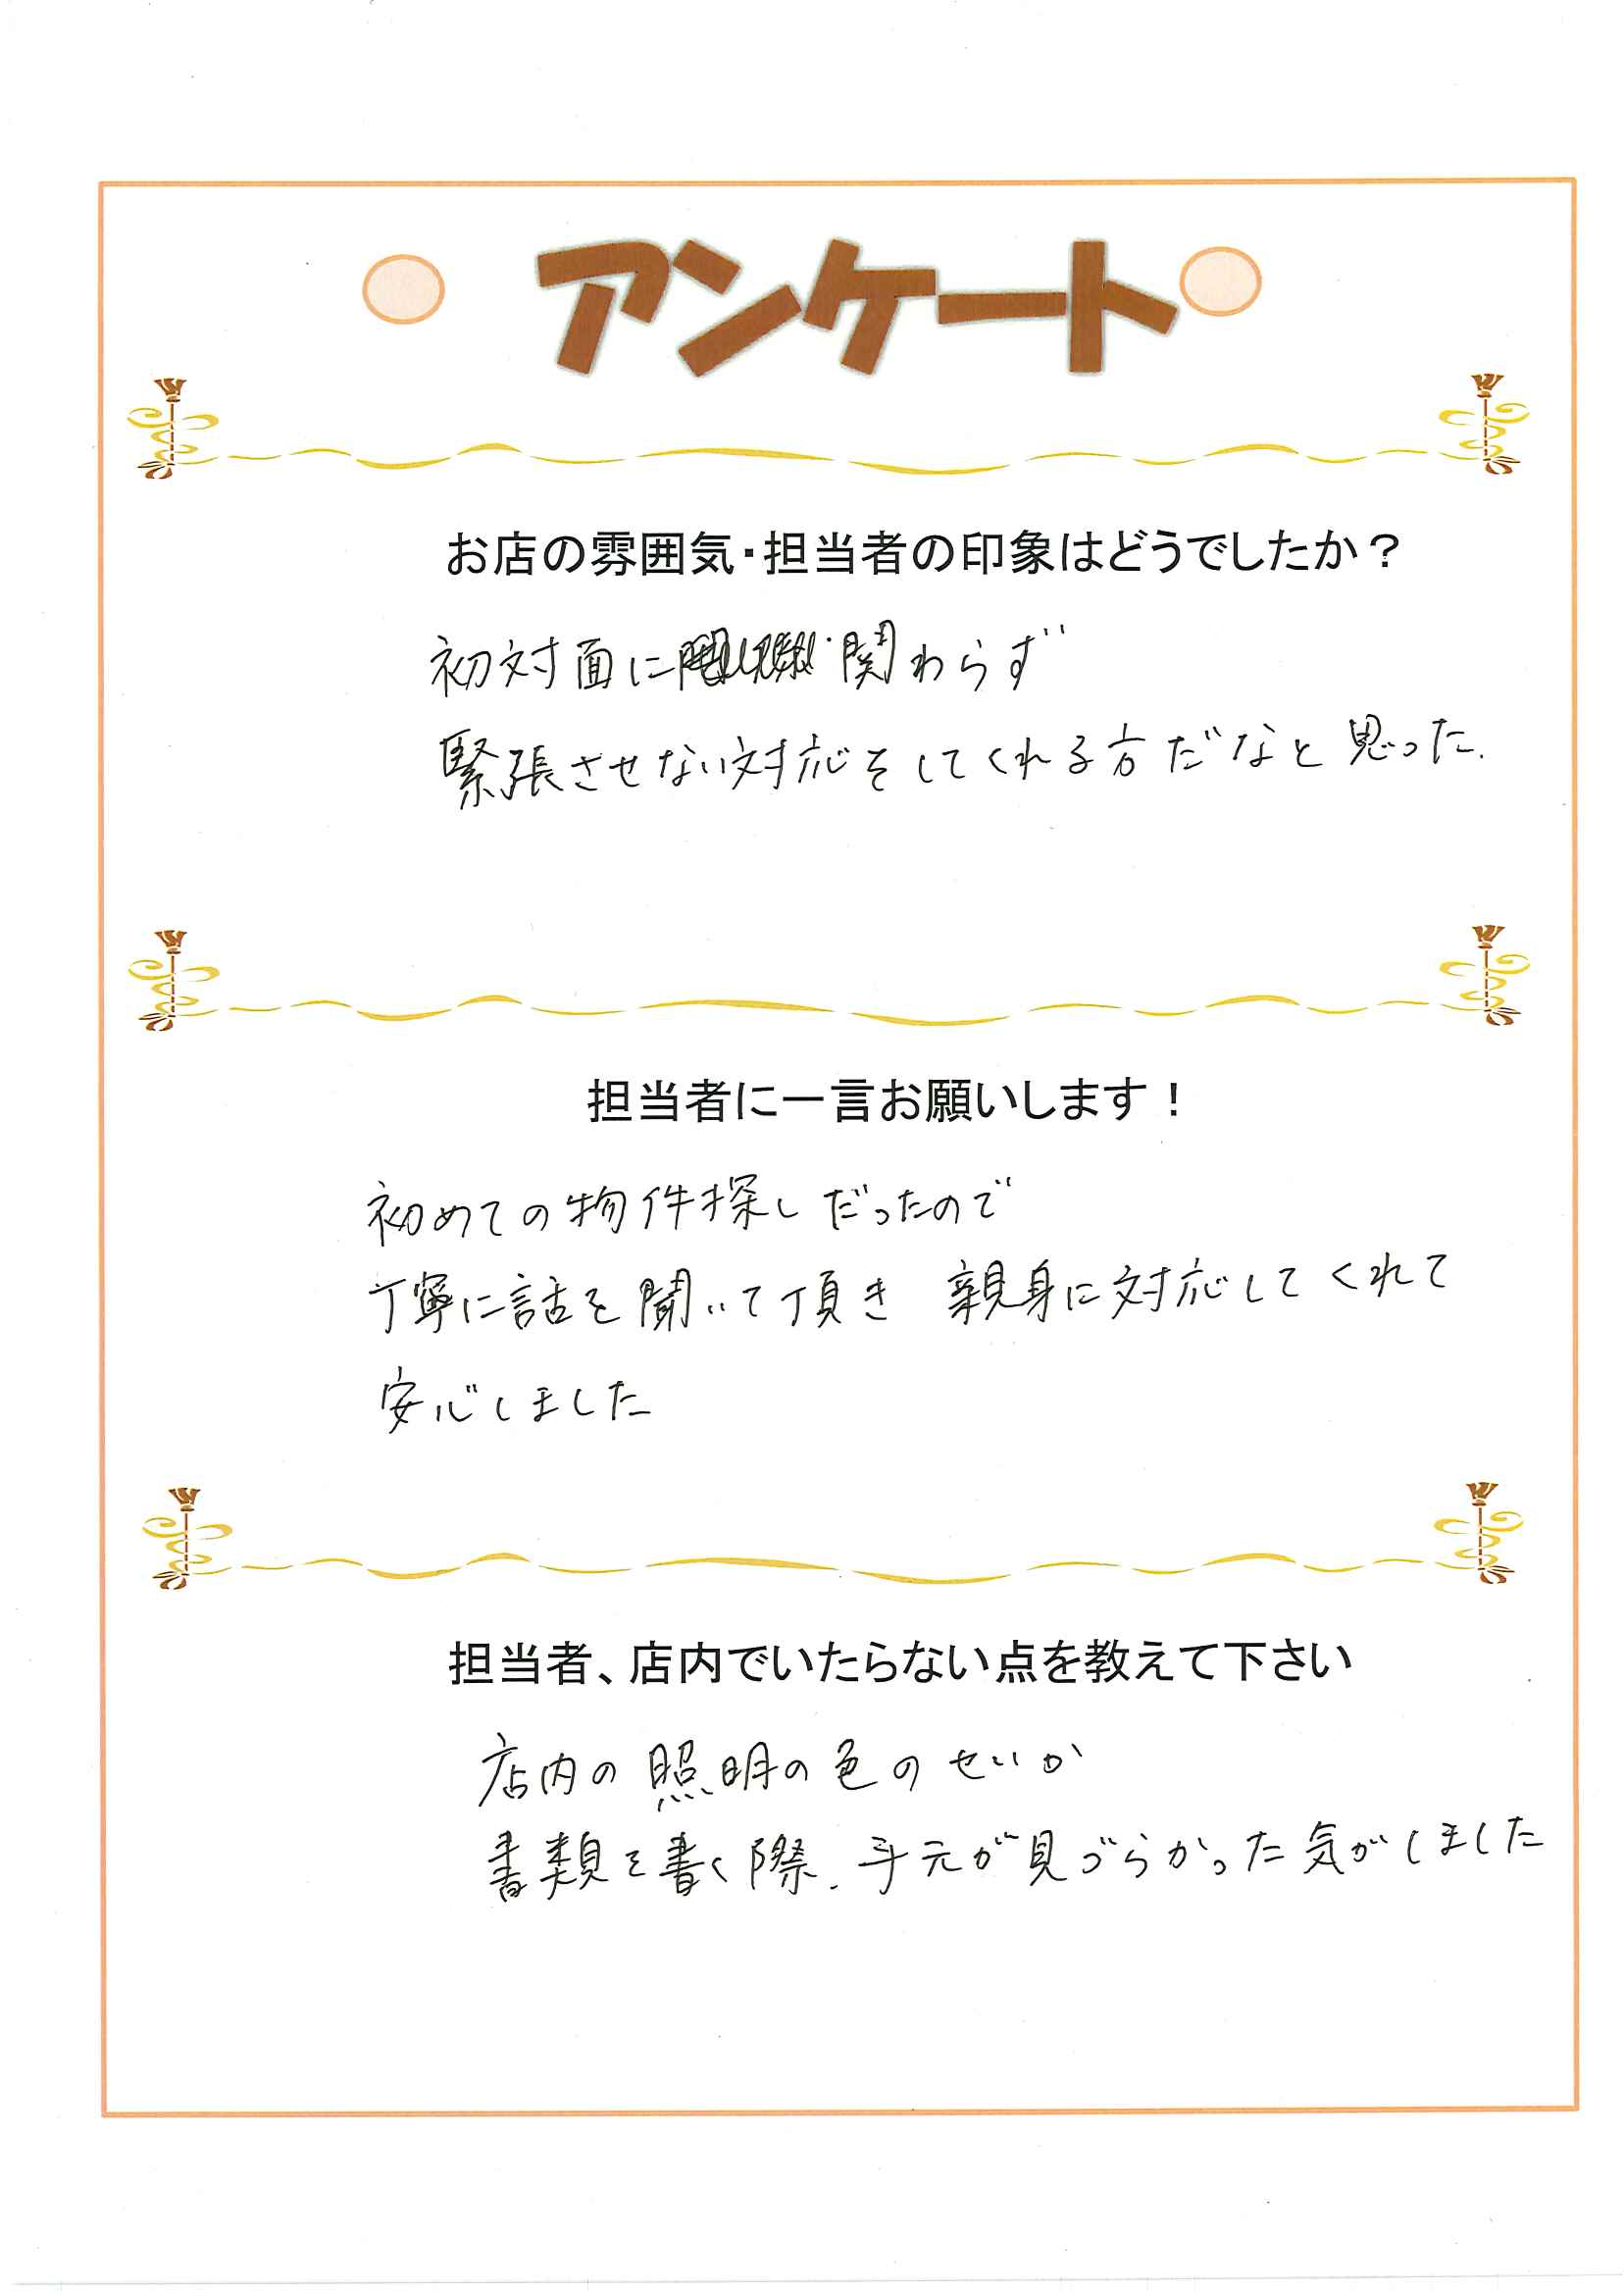 アンケート
お店の雰囲気・担当者の印象はどうでしたか？
初対面に関わらず
緊張させない対応をしてくれる方だなと思った.
担当者に一言お願いします！
初めての物件探しだったので
丁寧に話を聞いて頂き 親身に対応してくれて
安心しました
担当者、店内でいたらない点を教えて下さい
店内の照明の色のせいか
書類を書く際、手元が見づらかった気がしました